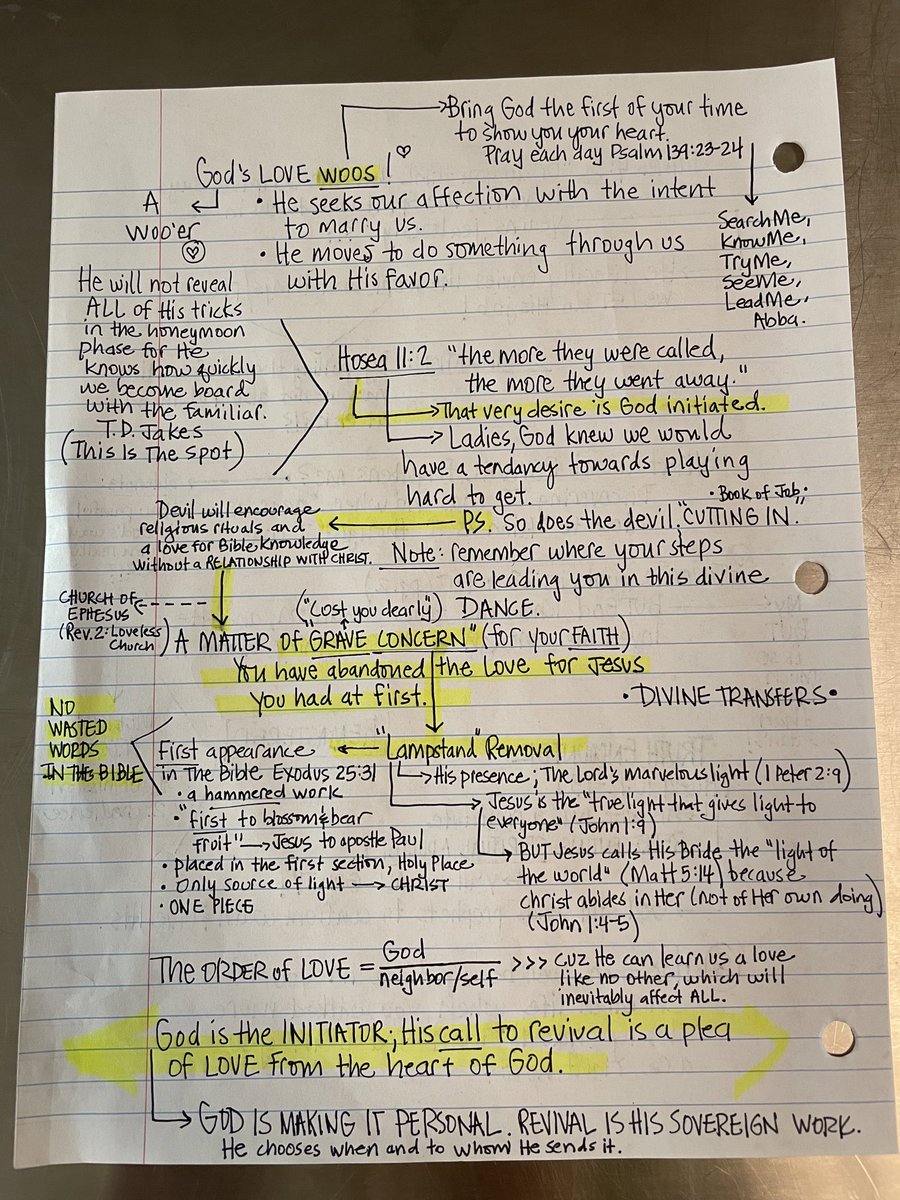 Bring God the first of your time
to show you your heart.
Pray each day Psalm 139:23-24
Search Me,
Know Me,
Try Me,
See Me,
Lead Me,
Abba.
God's LOVE WOOS!
A
Woo'er
• He seeks our affection with the intent
to marry us.
• He moves to do something through us
with His favor.
He will not reveal
ALL of His tricks
in the honeymoon
phase for He
knows how quickly
we become board
with the familiar.
T.D. Jakes
(This Is The Spot)
Hosea 11:2 "the more they were called,
the more they went away."
That very desire is God initiated.
Ladies, God knew we would
have a tendancy towards playing
hard to get.
• Book of Job;
PS. So does the devil. "CUTTING IN".
Devil will encourage
religious rituals and
a love for Bible knowledge
without a RELATIONSHIP WITH CHRIST.
Note: remember where your steps
are leading you in this divine
DANCE.
CHURCH OF
EPHESUS
(Rev. 2: Loveless
Church)
("Cost you dearly")
A MATTER OF "GRAVE CONCERN" (for your FAITH)
You have abandoned the love for Jesus
you had at first.
• DIVINE TRANSFERS •
NO
WASTED
WORDS
IN THE BIBLE
"Lampstand" Removal
First appearance
in The Bible Exodus 25:31
• a hammered work
• "first to blossom & bear
fruit" → Jesus to apostle Paul
• placed in the first section, Holy Place
• Only source of light → CHRIST
• ONE PIECE
His presence; The Lord's marvelous light (1 Peter 2:9)
Jesus is the "true light that gives light to
everyone" (John 1:9)
BUT Jesus calls His Bride the "light of
the world" (Matt 5:14) because
christ abides in Her (not of Her own doing)
(John 1:4-5)
The ORDER of LOVE = God
neighbor/self
>>> cuz He can learn us a love
like no other, which will
inevitably affect ALL.
God is the INITIATOR; His call to revival is a plea
of LOVE from the heart of God.
GOD IS MAKING IT PERSONAL. REVIVAL IS HIS SOVEREIGN WORK.
He chooses when and to whom He sends it.